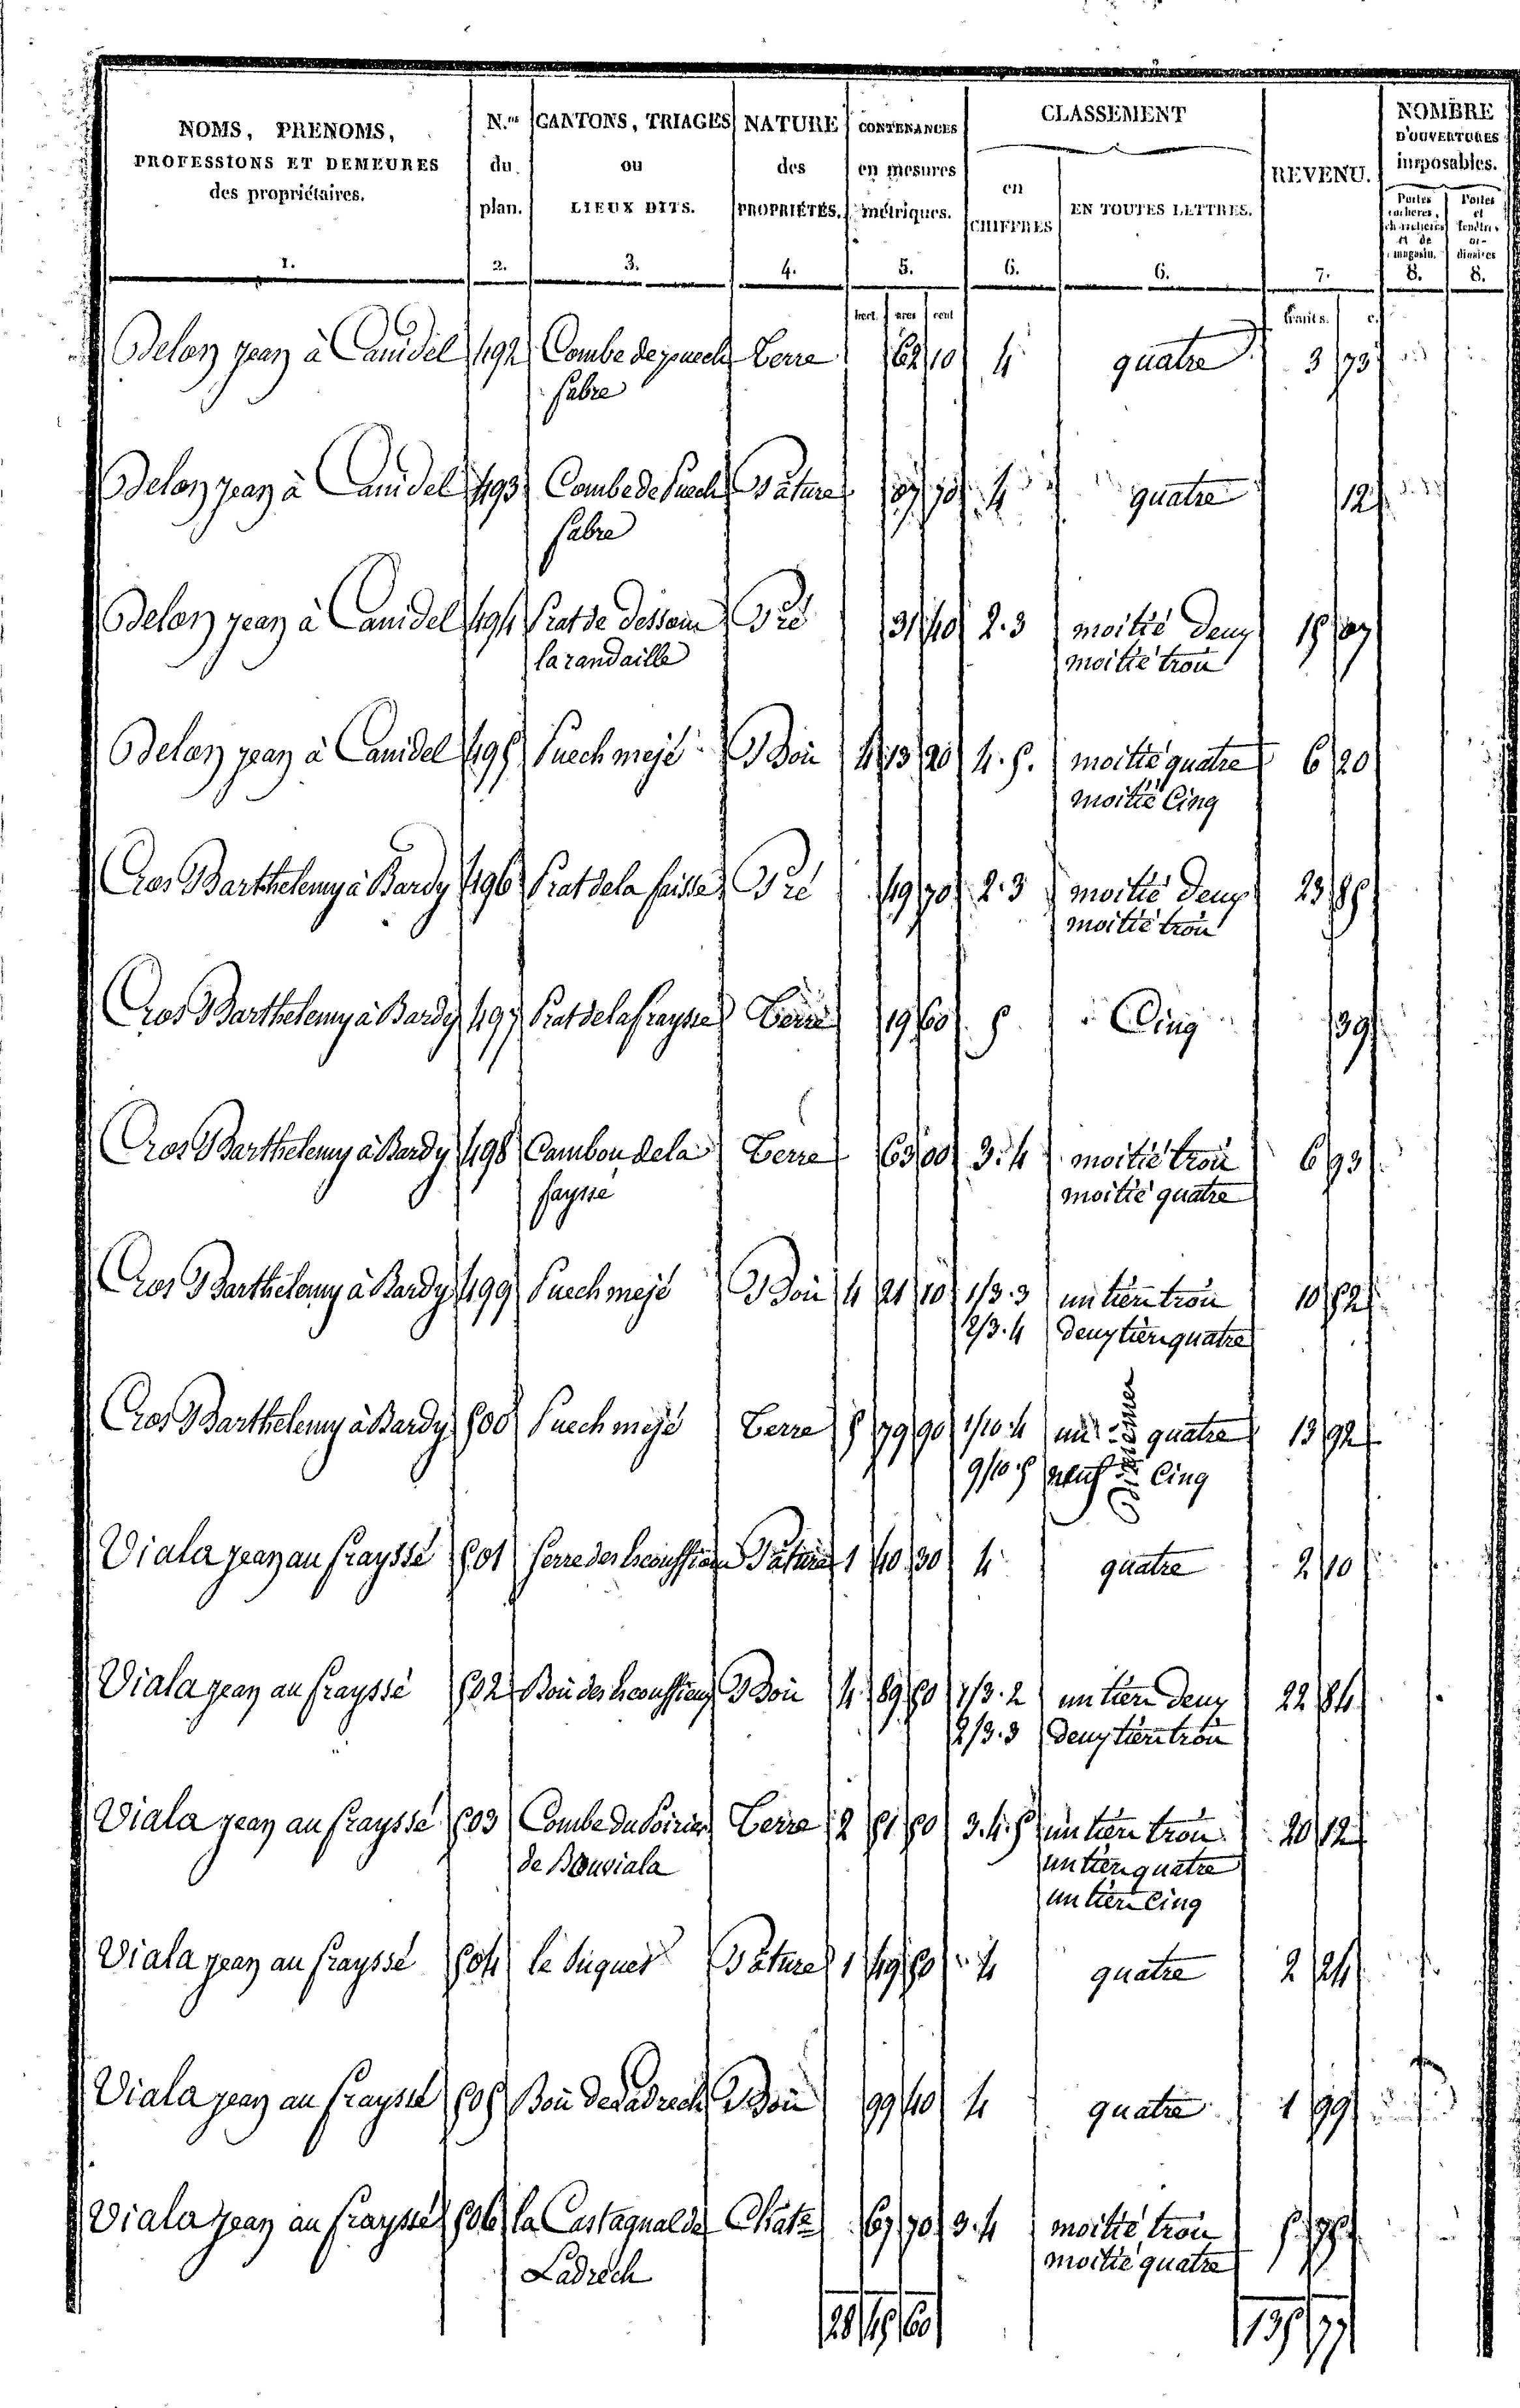 NOMS, PRENOMS, PROFESSIONS ET DEMEURES des propriétaires. 1.
N.os du plan. 2.
CANTONS, TRIAGES ou LIEUX DITS. 3.
NATURE des PROPRIÉTÉS. 4.
CONTENANCES en mesures métriques. 5.
CLASSEMENT
en CHIFFRES 6.
EN TOUTES LETTRES. 6.
REVENU. 7.
NOMBRE D'OUVERTURES imposables.
Portes cochères, charretières et de magasin. 8.
Portes et fenêtres ordinaires 8.
hect. ares cent
francs. c.
Delon jean à Canidel 492 Combe de puech Terre 62 10 4 quatre 3 73
fabre
Delon jean à Canidel 493 Combe de Puech Pature 70 4 quatre 12
fabre
Delon jean à Canidel 494 Prat de dessous Pré 31 40 2.3 moitié deux 15 07
larandaille moitié trois
Delon jean à Canidel 495 Puech mejé Bois 4 13 20 4.5. moitié quatre 6 20
moitié Cinq
Cros Barthelemy à Bardy 496 Prat de la faisse Pré 49 70 2.3 moitié deux 23 85
moitié trois
Cros Barthelemy à Bardy 497 Prat de la fraysse Terre 19 60 5 Cinq 39
Cros Barthelemy à Bardy 498 Cambon de la Terre 63 00 3.4 moitié trois 6 93
faysse moitié quatre
Cros Barthelemy à Bardy 499 Puech mejé Bois 4 21 10 1/3.3 un tiers trois 10 52
2/3.4 deux tiers quatre
Cros Barthelemy à Bardy 500 Puech mejé Terre 5 79 90 1/10.4 un quatre 13 92
9/10.5 neuf dixièmes Cinq
Viala jean au frayssé 501 Serre des Pature 1 40 30 4 quatre 2 10
Viala jean au frayssé 502 Bois des Bois 4 89 50 1/3.2 un tiers deux 22 84
2/3.3 deux tiers trois
Viala jean au frayssé 503 Combe du Poirier Terre 2 51 50 3.4.5 un tiers trois 20 12
de Bouviala un tiers quatre
un tiers Cinq
Viala jean au frayssé 504 le Suquet Pature 1 49 50 4 quatre 2 24
Viala jean au frayssé 505 Bois de Ladrech Bois 99 40 4 quatre 1 99
Viala jean au frayssé 506 la Castagnal de Chatx 67 70 3.4 moitié trois 5 75
Ladrech moitié quatre
28 45 60 135 77